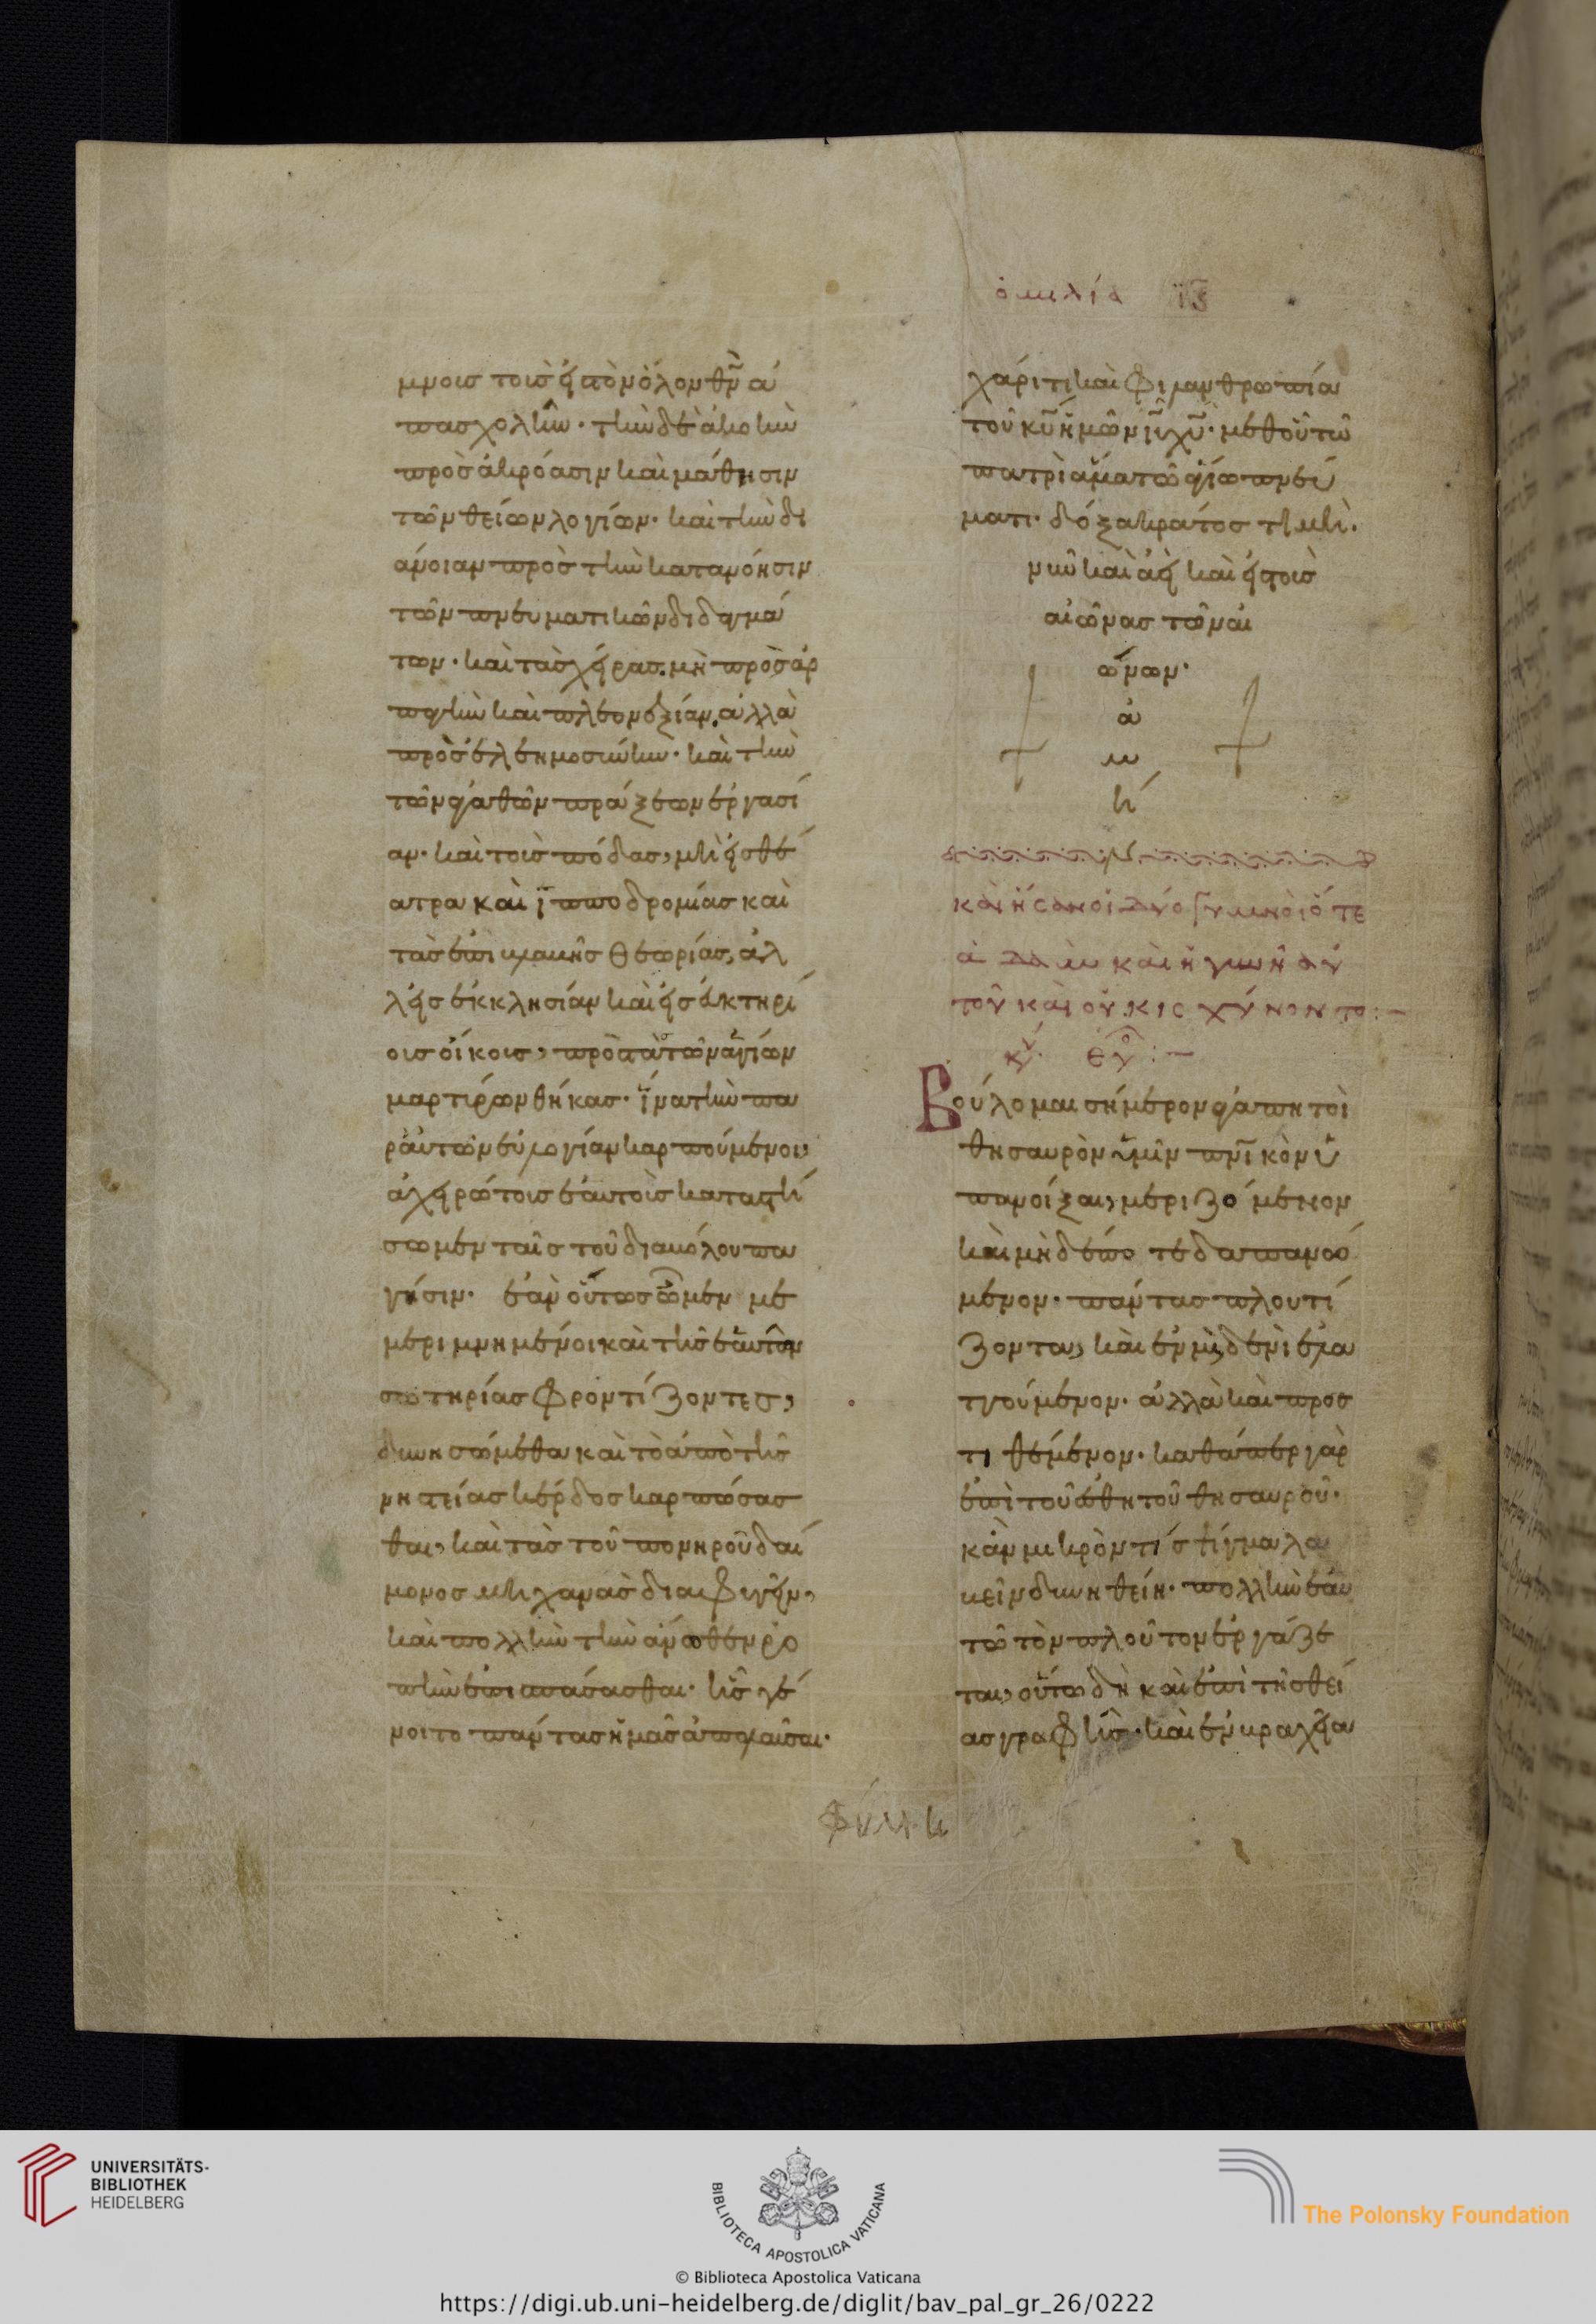 ὁμιλία ις
μνοις τοῖς εἰς τὸν ὅλον θν̅ ἀ
πασχολεῖν· τὴν δὲ ἀκοὴν
πρὸς ἀκρόασιν καὶ μάθησιν
τῶν θείων λογίων· καὶ τὴν δι
άνοιαν πρὸς τὴν κατανόησιν
τῶν πνευματικῶν διδαγμά
των· καὶ τὰς χεῖρας· μὴ πρὸς ἁρ
παγὴν καὶ πλεονεξίαν, ἀλλὰ
πρὸς ἐλεημοσύνην· καὶ τὴν
τῶν ἀγαθῶν πράξεων ἐργασί
αν· καὶ τοὺς πόδας, μὴ εἰς θέ
ατρα καὶ ἱπποδρομίας καὶ
τὰς ἐπιβλαβεῖς θεωρίας, ἀλ
λ' εἰς ἐκκλησίαν καὶ εἰς εὐκτηρί
οις οἴκοις, πρὸς τὰς τῶν ἁγίων
μαρτύρων θήκας· ἵνα τὴν πα
ρ' αὐτῶν εὐλογίαν καρπούμενοι,
ἀχειρώτοις ἑαυτοὺς καταστή
σωμεν ταῖς τοῦ διαβόλου πα
γίσιν· ἐὰν οὕτως ὦμεν με
μεριμνημένοι καὶ τῆς ἑαυτῶν
σωτηρίας φροντίζοντες,
δυνησώμεθα καὶ τὸ ἀπὸ τῆς
νηστείας κέρδος καρπώσασ
θαι, καὶ τὰς τοῦ πονηροῦ δαί
μονος μηχανὰς διαφυγεῖν,
καὶ πολλὴν τὴν ἄνωθεν ῥο
πὴν ἐπισπάσασθαι· ἧς γέ
νοιτο πάντας ἡμᾶς ἀπολαῦσαι·
χάριτι καὶ φιλανθρωπία
τοῦ κυ̅ ἡμῶν ιυ̅ χυ̅· μεθ' οὗ τῶ
πατρὶ ἅμα τῶ ἁγίω πνεύ
ματι· δόξα κράτος τιμὴ·
νῦν καὶ ἀεὶ καὶ εἰς τοὺς
αἰῶνας τῶν αἰ
ώνων·
ἀ
μ
ή
ν
καὶ ἦσαν οἱ δύο γυμνοὶ ὅ τε
ἀδὰμ καὶ ἡ γυνὴ αὐ
τοῦ καὶ οὐκ ἰσχύνοντο:—
κύ εὐ:—
Βούλομαι σήμερον ἀγαπητοὶ
θησαυρὸν ὑμῖν πνι̅κὸν ὑ
πανοίξαι, μεριζόμενον
καὶ μηδέποτε δαπανού
μενον· πάντας πλουτί
ζοντα, καὶ ἐν μηδενὶ ἐλα
ττούμενον· ἀλλὰ καὶ προσ
τιθέμενον· καθάπερ γὰρ
ἐπὶ τοῦ αἰσθητοῦ θησαυροῦ·
κἂν μικρόν τι στίγμα λα
βεῖν δυνηθείη· πολλὴν ἑαυ
τῶ τὸν πλοῦτον ἐργάζε
ται, οὕτω δὴ καὶ ἐπὶ τῆς θεί
ας γραφῆς· καὶ ἐν βραχεία
UNIVERSITÄTS-
BIBLIOTHEK
HEIDELBERG
BIBLIOTECA APOSTOLICA VATICANA
The Polonsky Foundation
© Biblioteca Apostolica Vaticana
https://digi.ub.uni-heidelberg.de/diglit/bav_pal_gr_26/0222